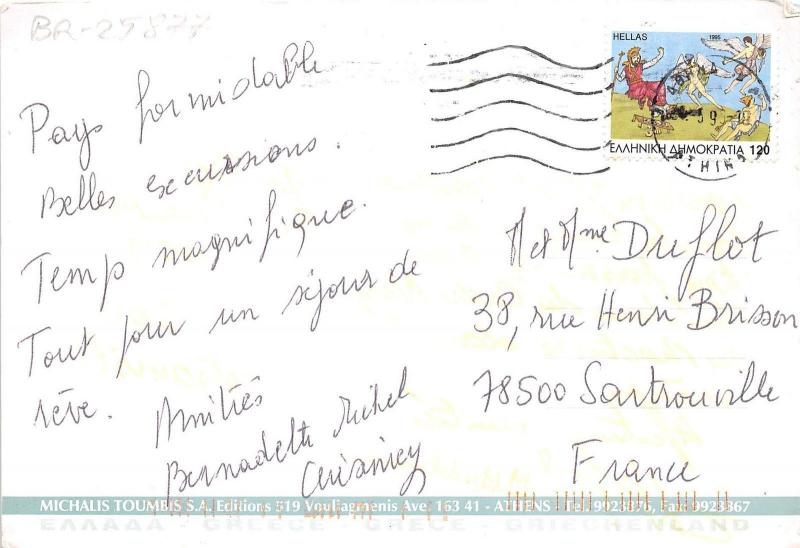 BR-25877
Pays formidable
Belles excursions.
Temp magnifique.
Tout pour un séjour de
rêve. Amitiés
Bernadette Michel
HELLAS 1995
ΕΛΛΗΝΙΚΗ ΔΗΜΟΚΡΑΤΙΑ 120
M et Mme Duflot
38, rue Henri Brisson
78500 Sartrouville
France
MICHALIS TOUMBIS S.A. Editions 519 Vouliagmenis Ave. 163 41 - ATHENS Tel. 9923876, Fax: 9923867
ΕΛΛΑΔΑ - GREECE - GRECE - GRIECHENLAND